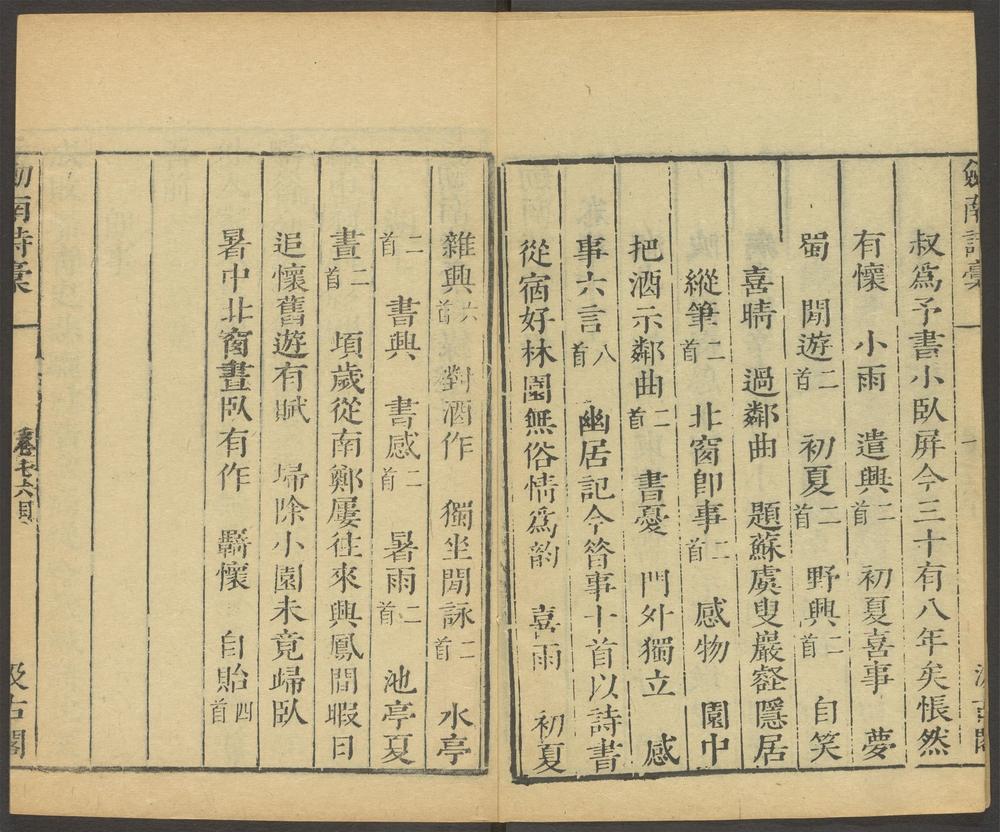 劔南詩稾
汲古閣
叔爲予書小臥屏今三十有八年矣悵然
有懷 小雨 遣興二首 初夏喜事 夢
蜀 閒遊二首 初夏二首 野興二首 自笑
喜晴 過鄰曲 題蘇虞叟巖壑隱居
縱筆二首 北窗卽事二首 感物 園中
把酒示鄰曲二首 書憂 門外獨立 感
事六言八首 幽居記今昝事十首以詩書
從宿好林園無俗情爲韵 喜雨 初夏
雜興六首 對酒作 獨坐閒詠二首 水亭
二首 書興 書感二首 暑雨二首 池亭夏
晝二首 頃歲從南鄭屢往來興鳳間暇日
追懷舊遊有賦 埽除小園未竟歸臥
暑中北窗晝臥有作 羇懷 自貽四首
劔南詩稾
卷七六目
汲古閣